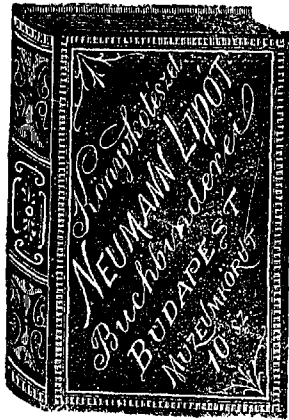 Könyvkötészet
NEUMANN LIPÓT
Buchbinderei
BUDAPEST
MUZEUMKÖRUT
10 sz.